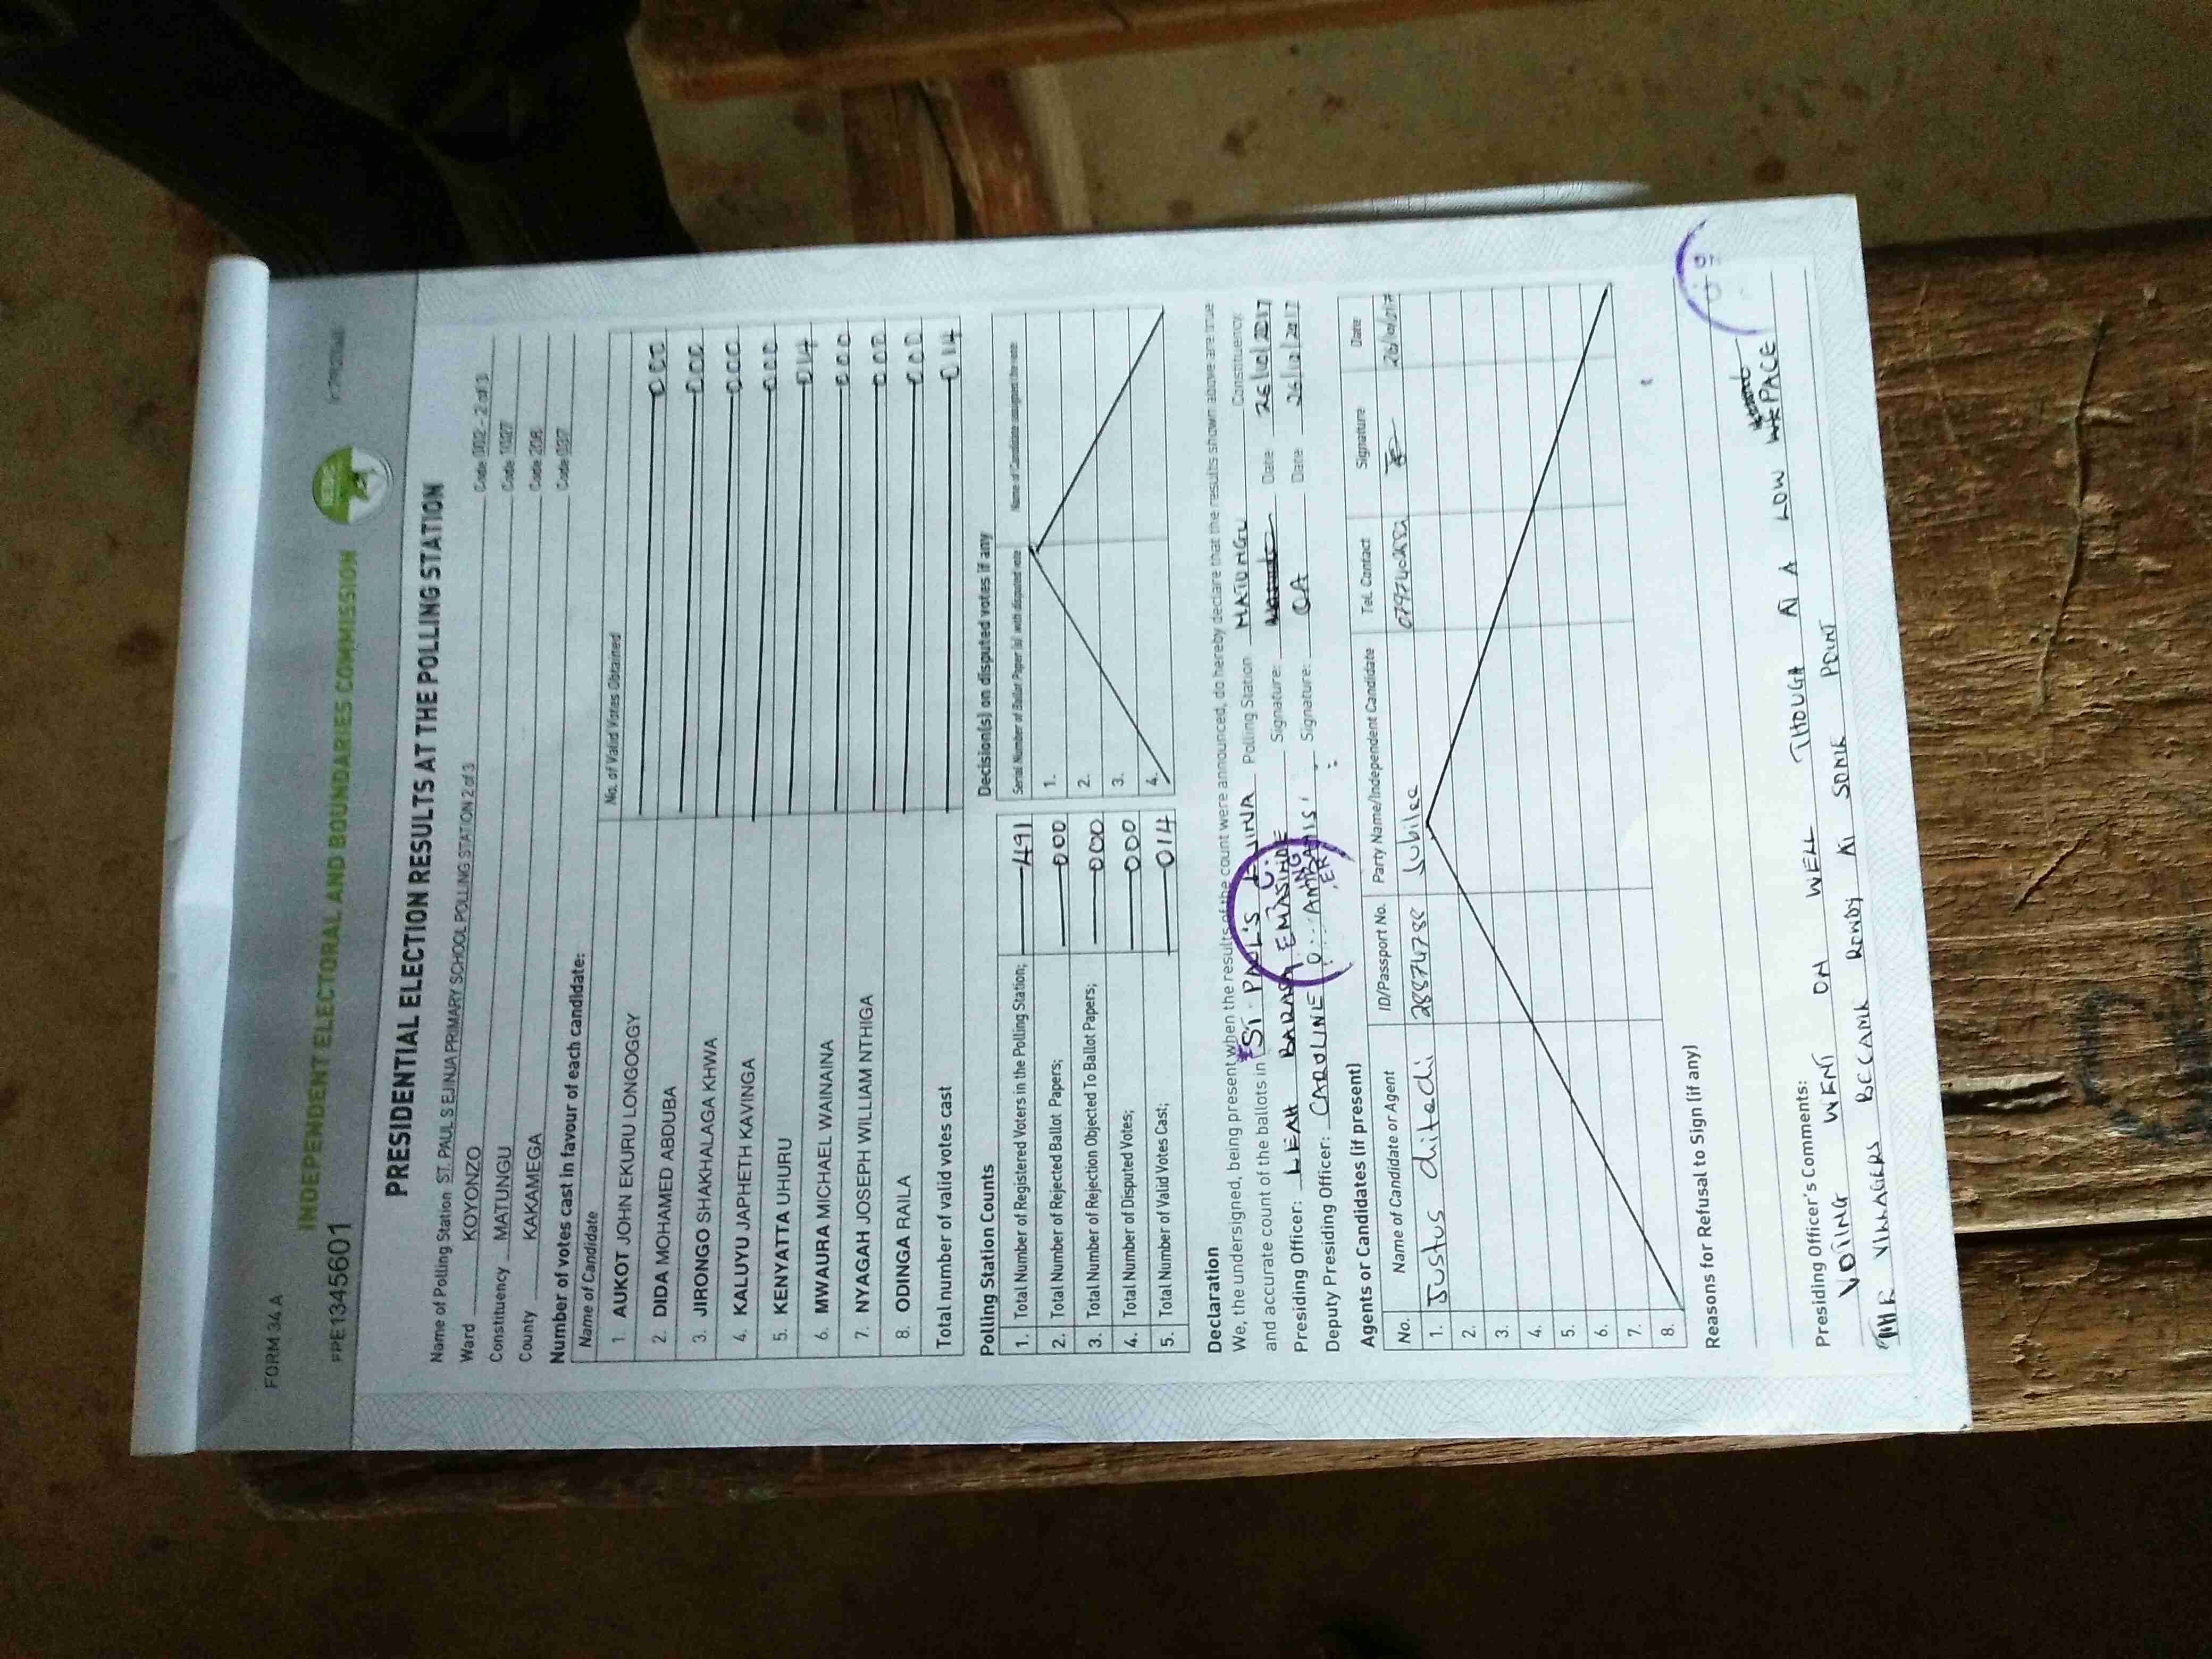 FORM 34 A
INDEPENDENT ELECTORAL AND BOUNDARIES COMMISSION
FPE13445601
PRESIDENTIAL ELECTION RESULTS AT THE POLLING STATION
Name of Polling Station ST. PAUL S EJINJA PRIMARY SCHOOL POLLING STATION 2 of 3 Code 002 - 2 of 3
Ward KOYONZO Code 1027
Constituency MATUNGU Code 208
County KAKAMEGA Code 037
Number of votes cast in favour of each candidate:
Name of Candidate No. of Valid Votes Obtained
1. AUKOT JOHN EKURU LONGOGGY 000
2. DIDA MOHAMED ABDUBA 000
3. JIRONGO SHAKHALAGA KHWA 000
4. KALUYU JAPHETH KAVINGA 000
5. KENYATTA UHURU 014
6. MWAURA MICHAEL WAINAINA 000
7. NYAGAH JOSEPH WILLIAM NTHIGA 000
8. ODINGA RAILA 000
Total number of valid votes cast 014
Polling Station Counts
1. Total Number of Registered Voters in the Polling Station; 491
2. Total Number of Rejected Ballot Papers; 000
3. Total Number of Rejection Objected To Ballot Papers; 000
4. Total Number of Disputed Votes; 000
5. Total Number of Valid Votes Cast; 014
Decision(s) on disputed votes if any
Serial Number of Ballot Paper (s) with disputed vote Name of Candidate assigned the vote
1.
2.
3.
4.
Declaration
We, the undersigned, being present when the results of the count were announced, do hereby declare that the results shown above are true
and accurate count of the ballots in ST. PAUL'S EJINJA Polling Station MATUNGU Constituency
Presiding Officer: LEAH BARASA EMASINDE Signature: Date 26/10/2017
Deputy Presiding Officer: CAROLINE Signature: Date 26/10/2017
Agents or Candidates (if present)
No. Name of Candidate or Agent ID/Passport No. Party Name/Independent Candidate Tel. Contact Signature Date
1. Justus chitechi 28874788 Jubilee 26/10/017
2.
3.
4.
5.
6.
7.
8.
Reasons for Refusal to Sign (if any)
Presiding Officer's Comments:
VOTING WENT ON WELL THOUGH AT A LOW PACE
THE VILLAGERS BECAME ROWDY AT SOME POINT